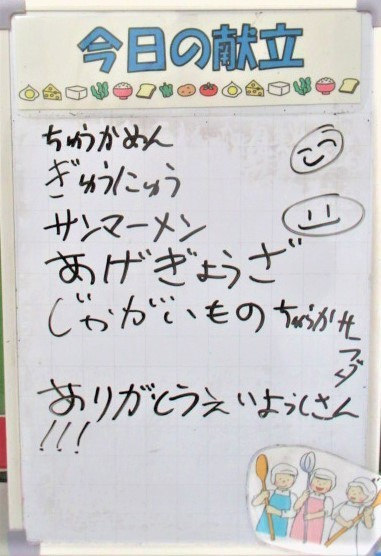 今日の献立
ちゅうかめん
ぎゅうにゅう
サンマーメン
あげぎょうざ
じゃがいものちゅうかサラダ
ありがとうえいようしさん
!!!